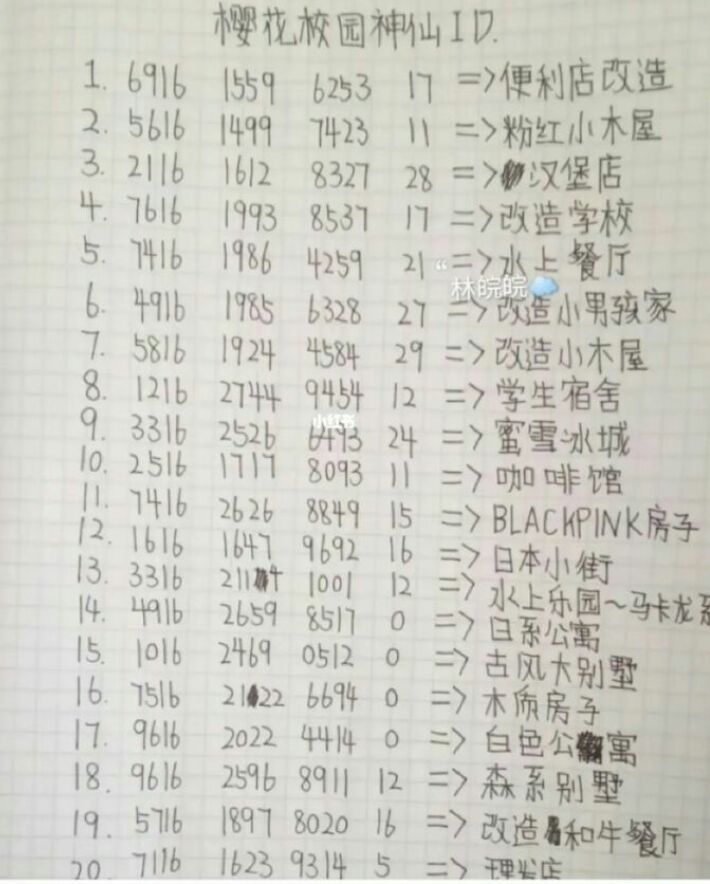 樱花校园神仙ID.
1. 6916 1559 6253 17 => 便利店改造
2. 5616 1499 7423 11 => 粉红小木屋
3. 2116 1612 8327 28 => 汉堡店
4. 7616 1993 8537 17 => 改造学校
5. 7416 1986 4259 21 => 水上餐厅
“林皖皖
6. 4916 1985 6328 27 => 改造小男孩家
7. 5816 1924 4584 29 => 改造小木屋
8. 1216 2744 9454 12 => 学生宿舍
小红书
9. 3316 2526 6493 24 => 蜜雪冰城
10. 2516 1717 8093 11 => 咖啡馆
11. 7416 2626 8849 15 => BLACKPINK房子
12. 1616 1647 9692 16 => 日本小街
13. 3316 2114 1001 12 => 水上乐园~马卡龙系
14. 4916 2659 8517 0 => 日系公寓
15. 1016 2469 0512 0 => 古风大别墅
16. 7516 2122 6694 0 => 木质房子
17. 9616 2022 4414 0 => 白色公寓
18. 9616 2596 8911 12 => 森系别墅
19. 5716 1897 8020 16 => 改造和牛餐厅
20. 7116 1623 9314 5 => 理发店